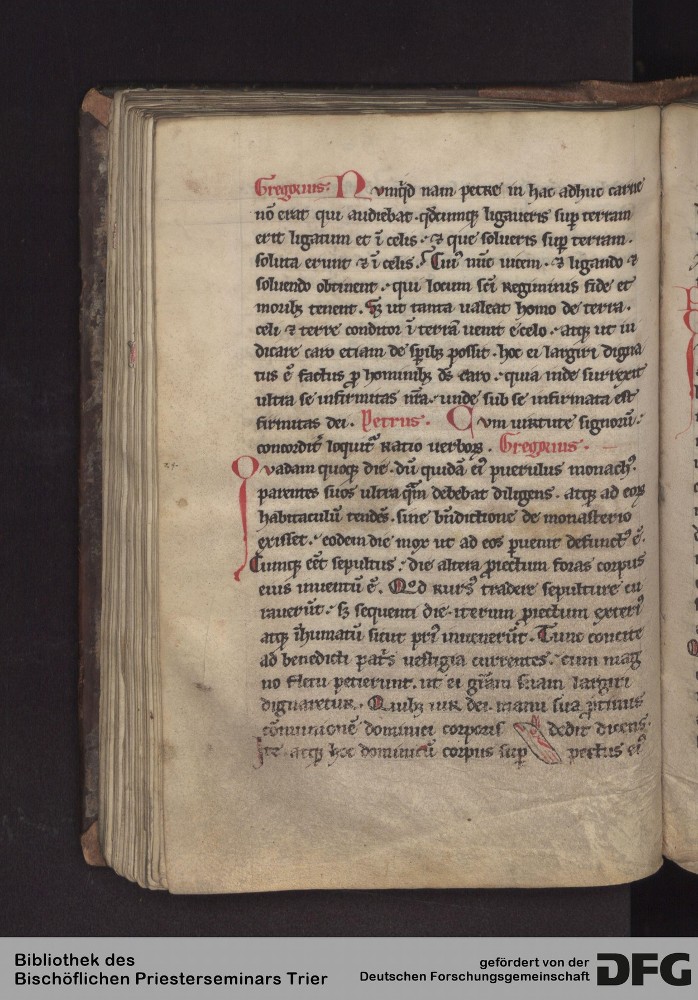 Gregorius: Nvmq̇d nam petre in hac adhuc carne
nō erat qui audiebat. qdcumq; ligaueris sup̱ terram
erit ligatum et ī celis. ⁊ que solueris sup̱ terram.
soluta erunt ⁊ ī celis. Cuiꝰ nūc uicem. ⁊ ligando ⁊
soluendo obtinent. qui locum sc̄i regiminis fide et
morib; tenent. S; ut tanta ualeat homo de terra.
celi ⁊ terre conditor ī terrā uenit e celo. atq; ut iu
dicare caro etiam de sp̄ib; possit. hoc ei largiri digna
tus ē factus ꝓ hominib; ds̄ caro. quia inde surrexit
ultra se infirmitas nr̄a. unde sub se infirmata est
firmitas dei. Petrus. Cvm uirtute signorū.
concordit̉ loquit̉ ratio uerboꝝ. Gregorius.
Qvadam quoq; die. dū quidā eiꝰ puerulus monachꝰ.
parentes suos ultra qm̄ debebat diligens. atq; ad eoꝝ
habitaculū tendēs. sine bn̄dictione de monasterio
exisset. eodem die mox ut ad eos ꝑuenit defunctꝰ ē.
Cumq; eēt sepultus. die altera ꝓiectum foras corpus
eius inuentū ē. Qod rursꝰ tradere sepulture cu
rauerūt. s; sequenti die. iterum ꝓiectum exteriꝰ
atq; īhumatū sicut priꝰ inuenerūt. Tunc concite
ad benedicti pat̄s uestigia currentes. cum mag
no fletu petierunt. ut ei gr̄am suam largiri
dignaretur. Quib; uir dei. manu sua ꝓtinus
cōmunionē dominici corporis dedit dicens.
Ite atq; hoc dominicū corpus sup̱ pectus eiꝰ
Bibliothek des
Bischöflichen Priesterseminars Trier
gefördert von der
Deutschen Forschungsgemeinschaft
DFG